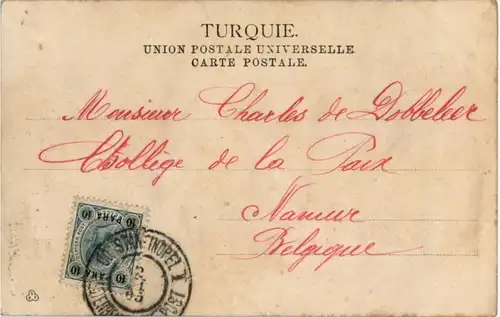 TURQUIE.
UNION POSTALE UNIVERSELLE
CARTE POSTALE.
Monsieur Charles de Dobbeleer
Collège de la Paix
Namur
Belgique
10 PARA 10
10 PARA 10